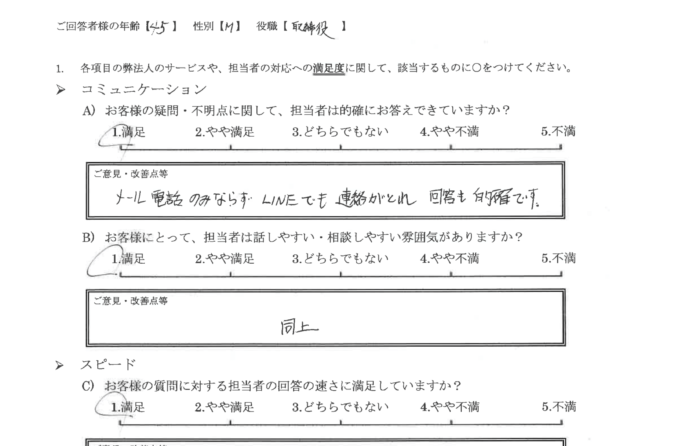 ご回答者様の年齢【45】 性別【M】 役職【取締役】
1. 各項目の弊法人のサービスや、担当者の対応への満足度に関して、該当するものに○をつけてください。
➤ コミュニケーション
A) お客様の疑問・不明点に関して、担当者は的確にお答えできていますか？
1.満足 2.やや満足 3.どちらでもない 4.やや不満 5.不満
ご意見・改善点等
メール電話のみならずLINEでも連絡がとれ 回答も的確です。
B) お客様にとって、担当者は話しやすい・相談しやすい雰囲気がありますか？
1.満足 2.やや満足 3.どちらでもない 4.やや不満 5.不満
ご意見・改善点等
同上
➤ スピード
C) お客様の質問に対する担当者の回答の速さに満足していますか？
1.満足 2.やや満足 3.どちらでもない 4.やや不満 5.不満